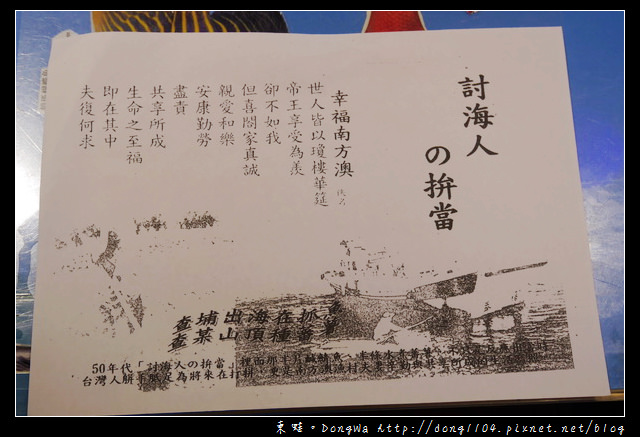 討海人
の拚當
幸福南方澳
世人皆以瓊樓華筵
帝王享受為羨
卻不如我
但喜閤家真誠
親愛和樂
安康勤勞
盡責
共享所成
生命之至福
即在其中
夫復何求
查埔出海在抓
查某山頂種
50年代「討海人の拚當
台灣人
東蛙。DongWa http://dong1104.pixnet.net/blog